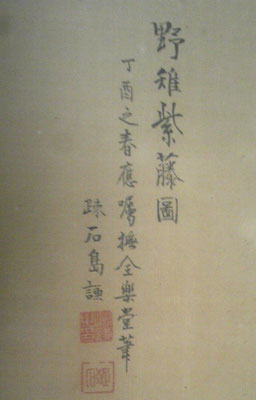 野雉紫藤圖
丁酉之春應囑撫全樂堂筆
疎石島謹